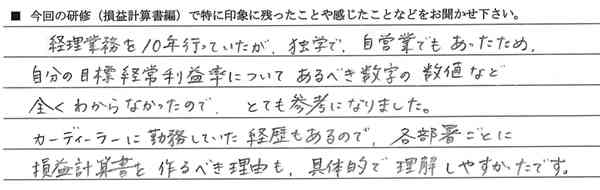 ■ 今回の研修（損益計算書編）で特に印象に残ったことや感じたことなどをお聞かせ下さい。
経理業務を10年行っていたが、独学で、自営業でもあったため、
自分の目標経常利益率について あるべき数字の数値など
全くわからなかったので、とても参考になりました。
カーディーラーに勤務していた経歴もあるので、各部署ごとに
損益計算書を作るべき理由も、具体的で理解しやすかったです。